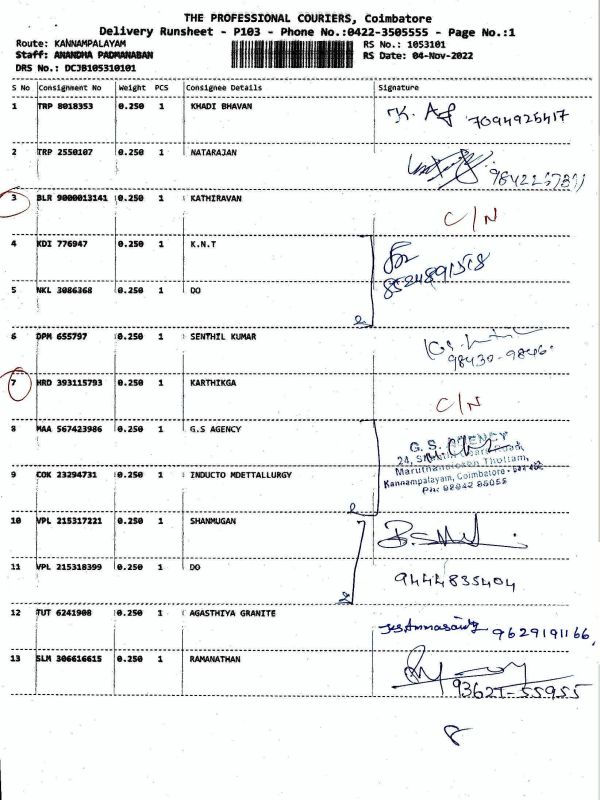 THE PROFESSIONAL COURIERS, Coimbatore
Delivery Runsheet - P103 - Phone No.:0422-3505555 - Page No.:1
Route: KANNAMPALAYAM
RS No.: 1053101
Staff: ANANDHA PADMANABAN
RS Date: 04-Nov-2022
DRS No.: DCJB105310101
S No Consignment No Weight PCS Consignee Details Signature
1 TRP 8018353 0.250 1 KHADI BHAVAN 7094926417
2 TRP 2550107 0.250 1 NATARAJAN
3 BLR 9000013141 0.250 1 KATHIRAVAN C/N
4 KDI 776947 0.250 1 K.N.T for
8524891518
5 NKL 3086368 0.250 1 DO
2
6 DPM 655797 0.250 1 SENTHIL KUMAR
98430-9846
7 HRD 393115793 0.250 1 KARTHIKGA C/N
8 MAA 567423986 0.250 1 G.S AGENCY
G. S. AGENCY
24, Road,
Thottam,
Kannampalayam, Coimbatore -
9 COK 23294731 0.250 1 INDUCTO MDETTALLURGY
2
10 VPL 215317221 0.250 1 SHANMUGAN
11 VPL 215318399 0.250 1 DO 9444835404
2
12 TUT 6241908 0.250 1 AGASTHIYA GRANITE 9629191166
13 SLM 306616615 0.250 1 RAMANATHAN
93627-55955
8